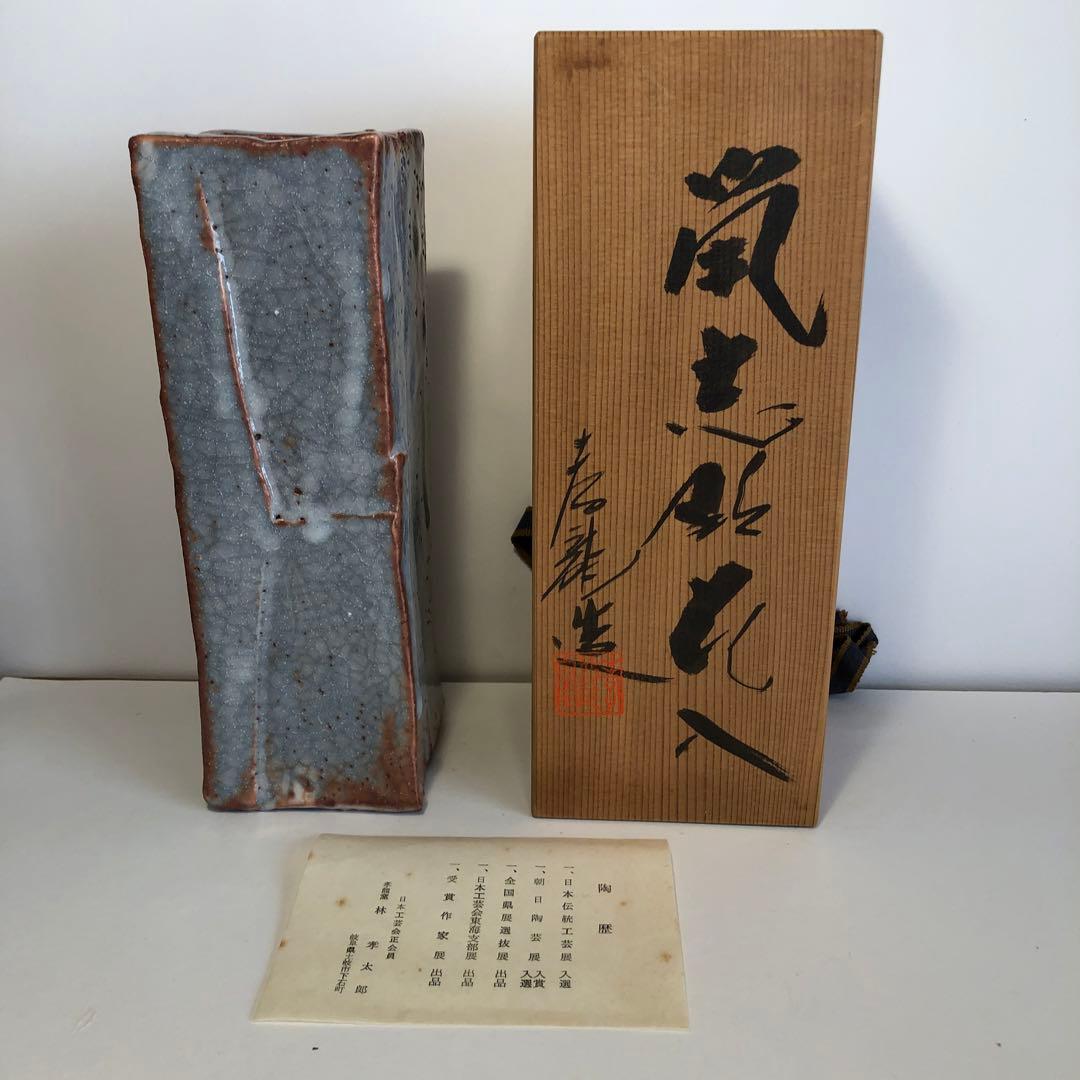 鼠志野花入
春龍造
陶歴
一、日本伝統工芸展 入選
一、朝日陶芸展 入賞入選
一、全国県展選抜展 出品
一、日本工芸会東海支部展 出品
一、受賞作家展 出品
日本工芸会正会員
林 孝太郎
岐阜県土岐市下石町